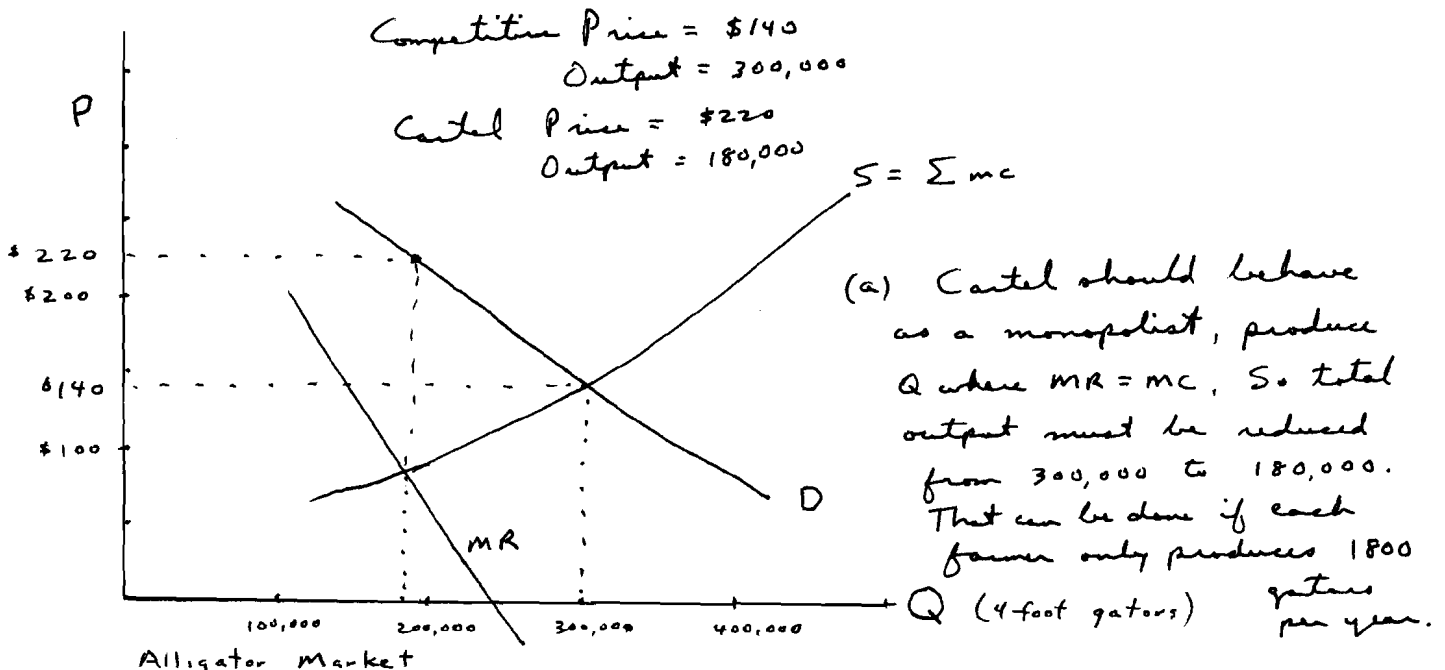 Competitive Price = $140
Output = 300,000
Cartel Price = $220
Output = 180,000
P
S = Σ mc
$220
$200
$140
$100
D
MR
100,000
200,000
300,000
400,000
Q (4-foot gators)
Alligator Market
(a) Cartel should behave
as a monopolist, produce
Q where MR = MC. So total
output must be reduced
from 300,000 to 180,000.
That can be done if each
farmer only produces 1800
gators
per year.